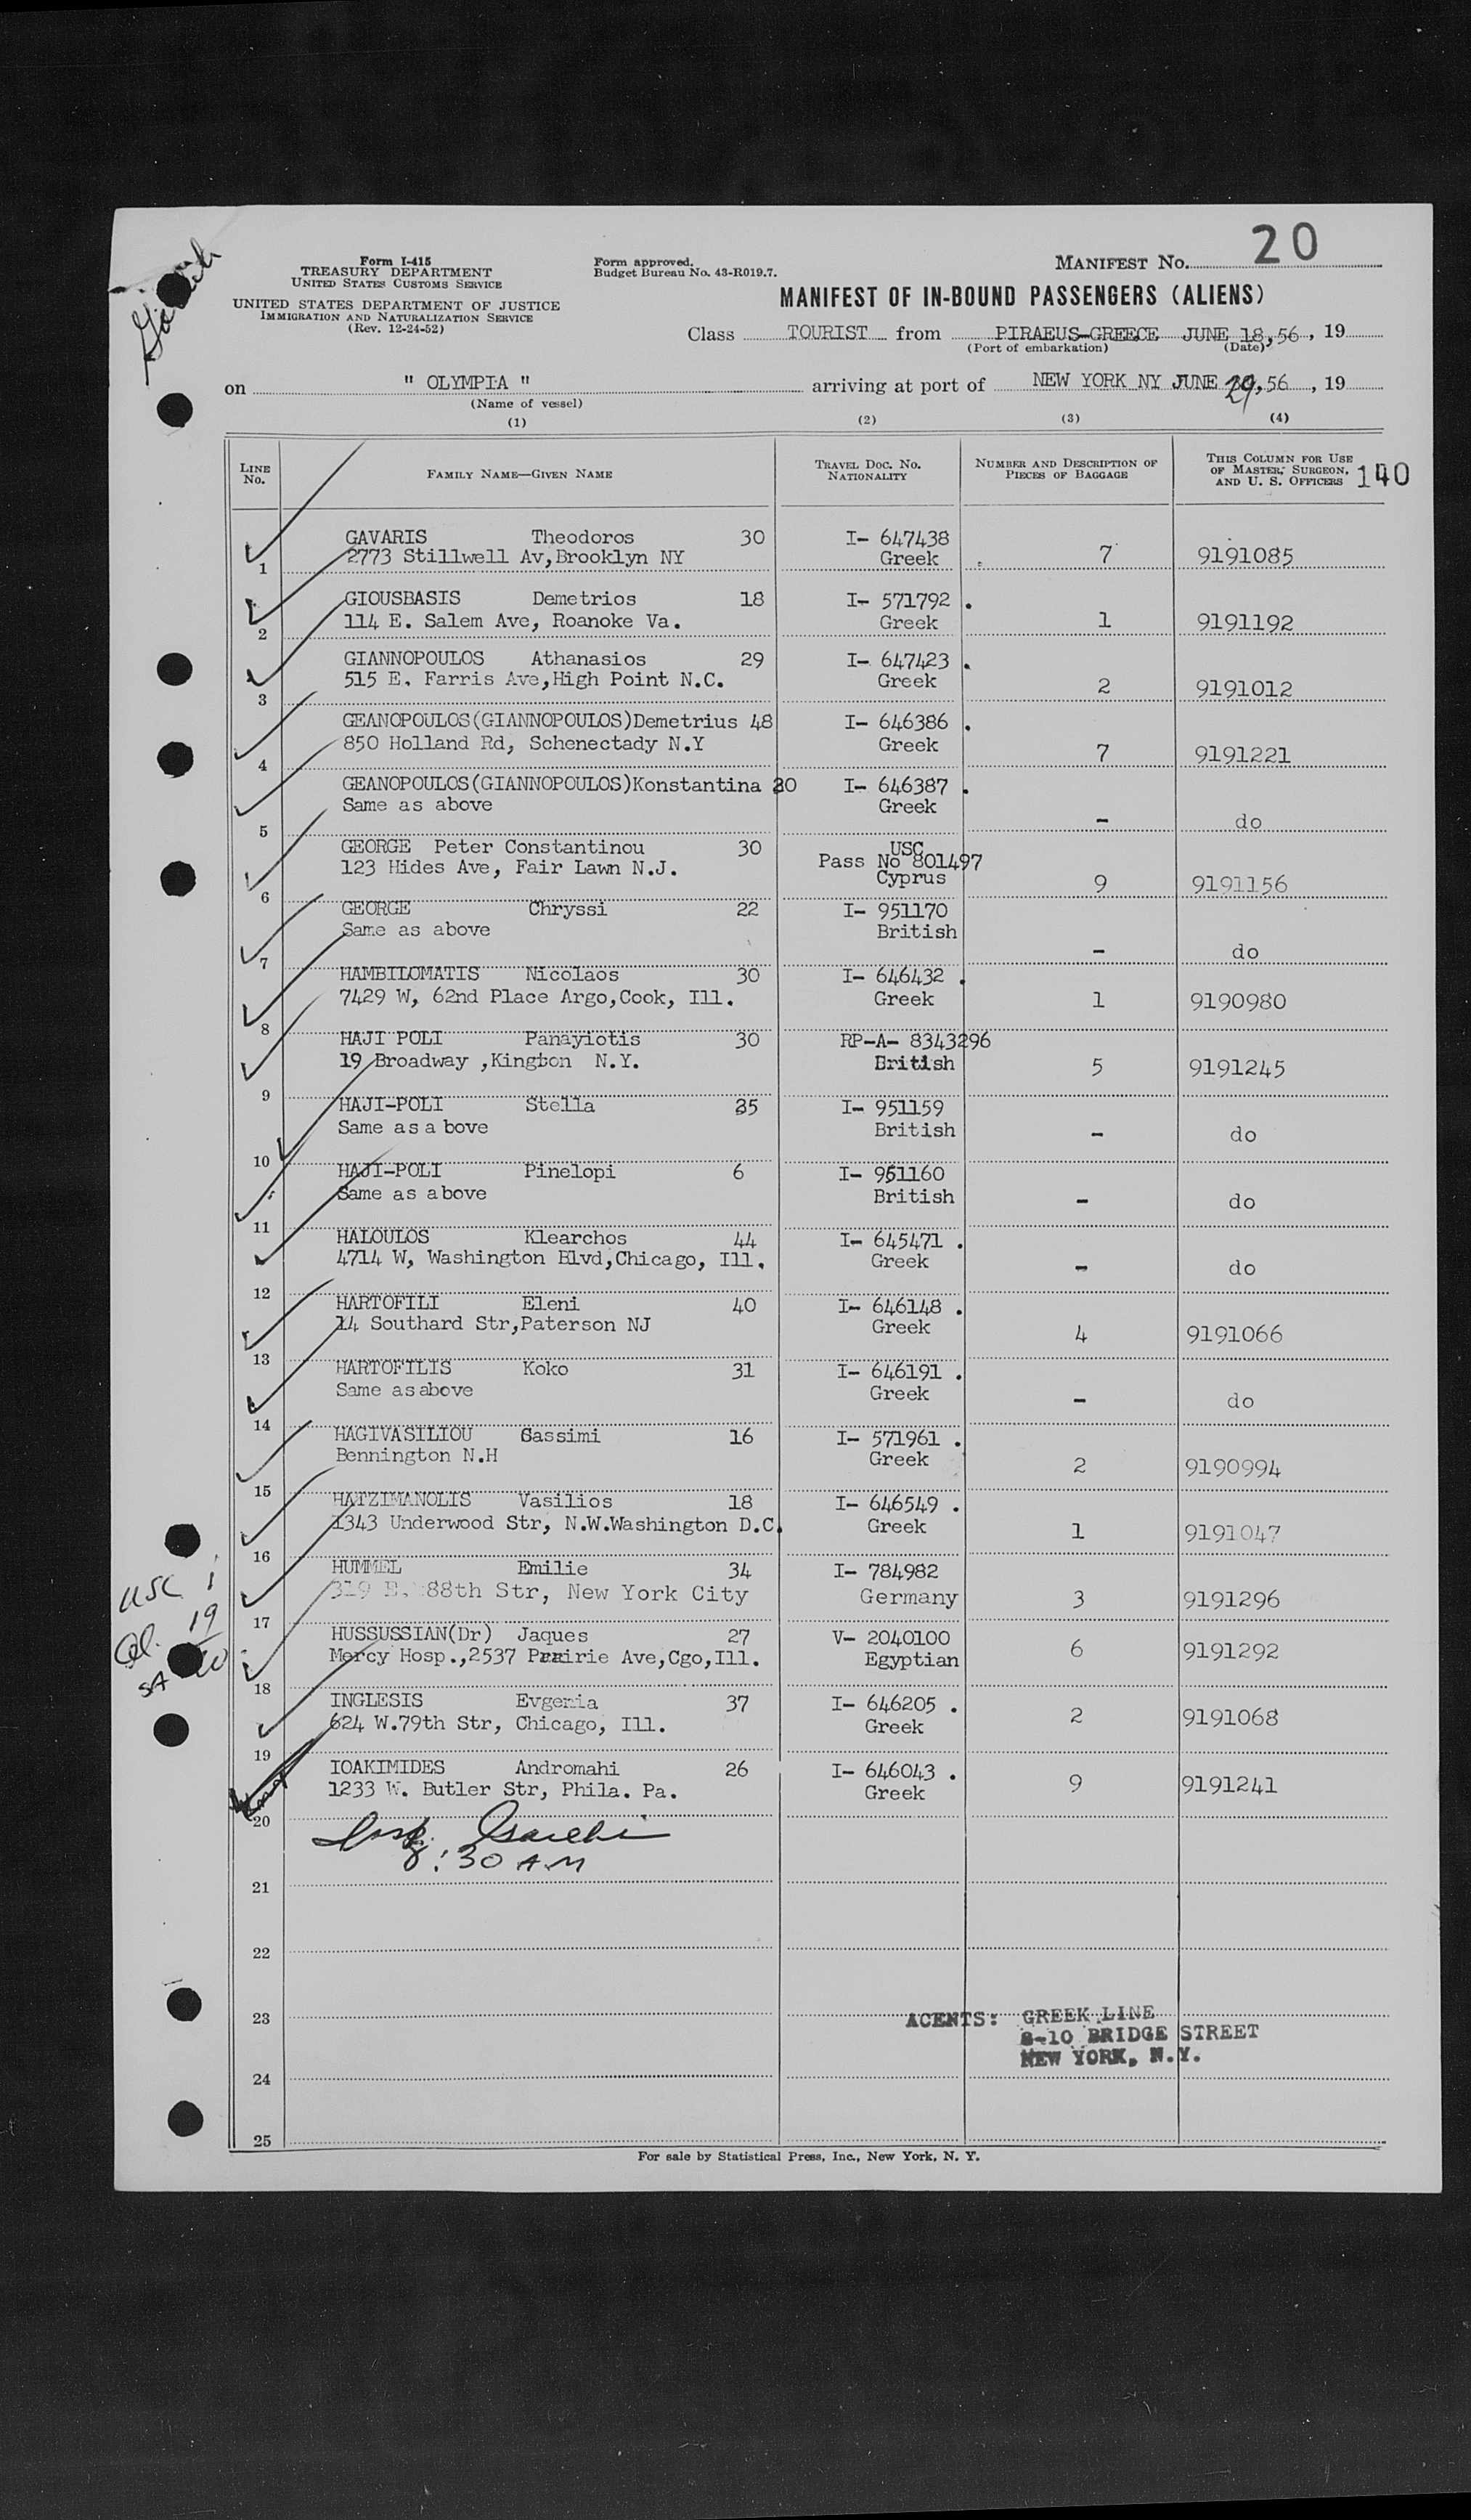 20
Form I-415
TREASURY DEPARTMENT
UNITED STATES CUSTOMS SERVICE
UNITED STATES DEPARTMENT OF JUSTICE
IMMIGRATION AND NATURALIZATION SERVICE
(Rev. 12-24-52)
Form approved.
Budget Bureau No. 43-R019.7.
MANIFEST NO.
MANIFEST OF IN-BOUND PASSENGERS (ALIENS)
Class TOURIST from PIRAEUS-GREECE JUNE 18,56, 19
(Port of embarkation) (Date)
on " OLYMPIA " arriving at port of NEW YORK NY JUNE 29,56, 19
(Name of vessel)
(1) (2) (3) (4)
LINE NO. FAMILY NAME—GIVEN NAME TRAVEL DOC. NO. NATIONALITY NUMBER AND DESCRIPTION OF PIECES OF BAGGAGE THIS COLUMN FOR USE OF MASTER, SURGEON, AND U. S. OFFICERS 140
GAVARIS Theodoros 30 I- 647438
1 2773 Stillwell Av,Brooklyn NY Greek 7 9191085
GIOUSBASIS Demetrios 18 I- 571792 .
2 114 E. Salem Ave, Roanoke Va. Greek 1 9191192
GIANNOPOULOS Athanasios 29 I- 647423 .
3 515 E. Farris Ave,High Point N.C. Greek 2 9191012
GEANOPOULOS(GIANNOPOULOS)Demetrius 48 I- 646386 .
4 850 Holland Rd, Schenectady N.Y Greek 7 9191221
GEANOPOULOS(GIANNOPOULOS)Konstantina I- 646387 .
5 Same as above Greek - do
GEORGE Peter Constantinou 30 USC Pass No 801497
6 123 Hides Ave, Fair Lawn N.J. Cyprus 9 9191156
GEORGE Chryssi 22 I- 951170
7 Same as above British - do
HAMBILOMATIS Nicolaos 30 I- 646432 .
8 7429 W, 62nd Place Argo,Cook, Ill. Greek 1 9190980
HAJI POLI Panayiotis 30 RP-A- 8343296
9 19 Broadway ,Kington N.Y. British 5 9191245
HAJI-POLI Stella I- 951159
10 Same as a bove British - do
HAJI-POLI Pinelopi 6 I- 951160
11 Same as above British - do
HALOULOS Klearchos 44 I- 645471 .
12 4714 W, Washington Blvd,Chicago, Ill. Greek - do
HARTOFILI Eleni 40 I- 646148 .
13 14 Southard Str,Paterson NJ Greek 4 9191066
HARTOFILIS Koko 31 I- 646191 .
14 Same as above Greek - do
HAGIVASILIOU Gassimi 16 I- 571961 .
15 Bennington N.H Greek 2 9190994
HATZIMANOLIS Vasilios 18 I- 646549 .
16 1343 Underwood Str, N.W.Washington D.C. Greek 1 9191047
HUMMEL Emilie 34 I- 784982
17 319 E. 88th Str, New York City Germany 3 9191296
HUSSUSSIAN(Dr) Jaques 27 V- 2040100
18 Mercy Hosp.,2537 Prairie Ave,Cgo,Ill. Egyptian 6 9191292
INGLESIS Evgenia 37 I- 646205 .
19 624 W.79th Str, Chicago, Ill. Greek 2 9191068
IOAKIMIDES Andromahi 26 I- 646043 .
20 1233 W. Butler Str, Phila. Pa. Greek 9 9191241
8:30 A.M
USC 1
19
21
22
23
24
25
AGENTS: GREEK LINE
8-10 BRIDGE STREET
NEW YORK, N.Y.
For sale by Statistical Press, Inc., New York, N. Y.